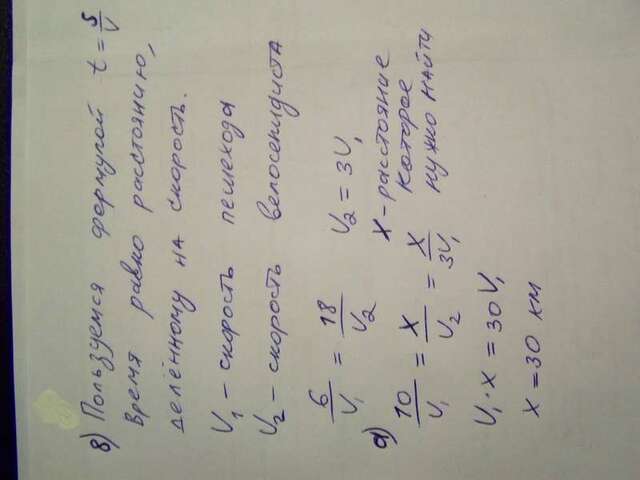 8) Пользуемся формулой t = S/V
Время равно расстоянию,
делённому на скорость.
V₁ – скорость пешехода
V₂ – скорость велосепидиста
6/V₁ = 18/V₂ V₂ = 3V₁
а) X – расстояние
которое
нужно найти
10/V₁ = X/V₂ = X/3V₁
V₁·X = 30V₁
X = 30 км